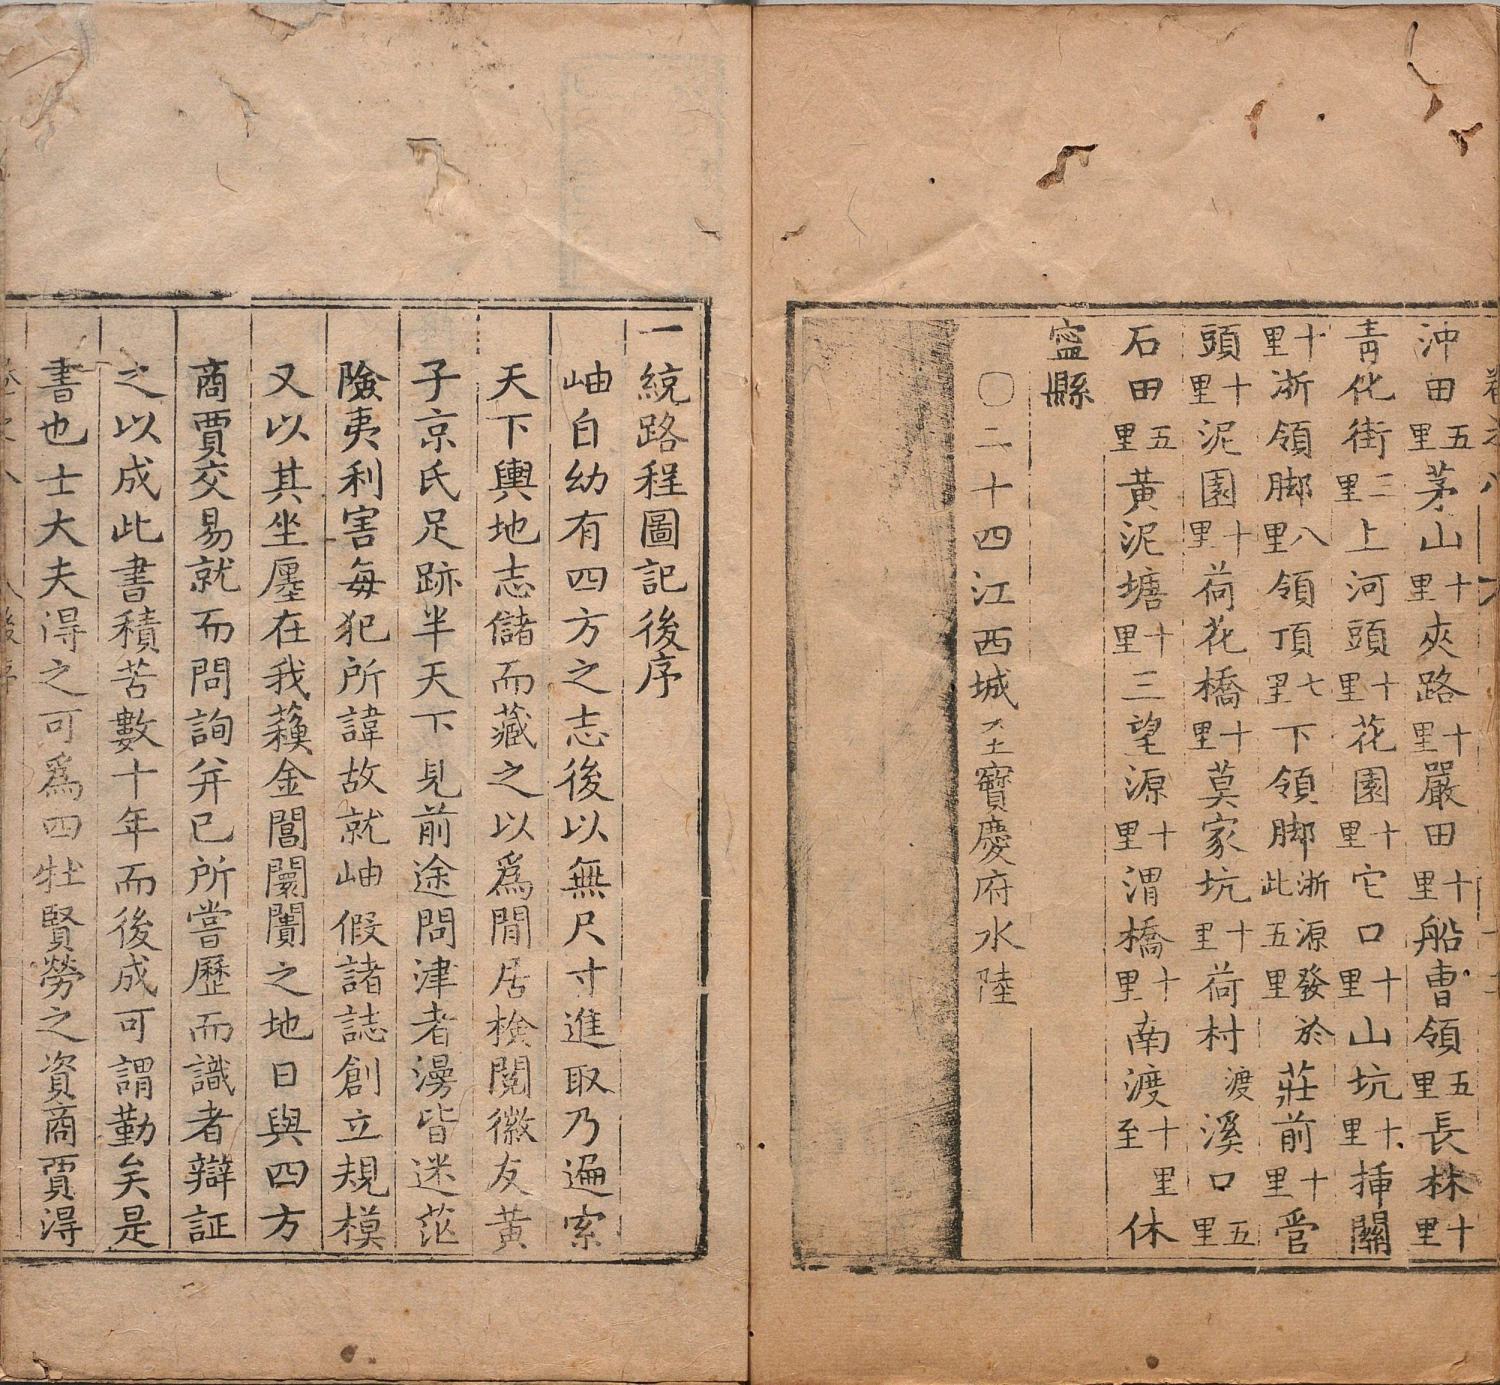 沖田五里茅山十里夾路十里嚴田十里船曹領五里長林十里
青化街三里上河頭十里花園十里它口十里山坑十里揷關
十里浙領脚八里領頂七里下領脚浙源發於此五里莊前十里 官
頭十里泥園十里荷花橋十里莫家坑十里荷村渡溪口五里
石田五里黃泥塘十里三望源十里渭橋十里南渡十里至休
寧縣
〇二十四江西城至寶慶府水陸
一統路程圖記後序
岫自幼有四方之志後以無尺寸進取乃遍索
天下輿地志儲而藏之以爲閒居檢閱徽友黃
子京氏足跡半天下見前途問津者漫皆迷茫
險夷利害每犯所諱故就岫假諸誌創立規模
又以其坐廛在我蘓金閶闤闠之地日與四方
商賈交易就而問詢并已所嘗歷而識者辯証
之以成此書積苦數十年而後成可謂勤矣是
書也士大夫得之可爲四牡賢勞之資商賈得